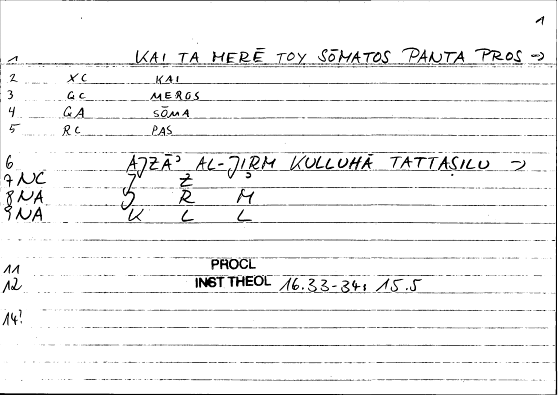 1
1 KAI TA MERĒ TOY SŌMATOS PANTA PROS →
2 XC KAI
3 GC MEROS
4 GA SŌMA
5 RC PAS
6 AJZĀʾ AL-JIRM KULLUHĀ TATTAṢILU →
7 NC J Z ʾ
8 NA J R M
9 NA K L L
11 PROCL
12 INST THEOL 16.33-34; 15.5
14!